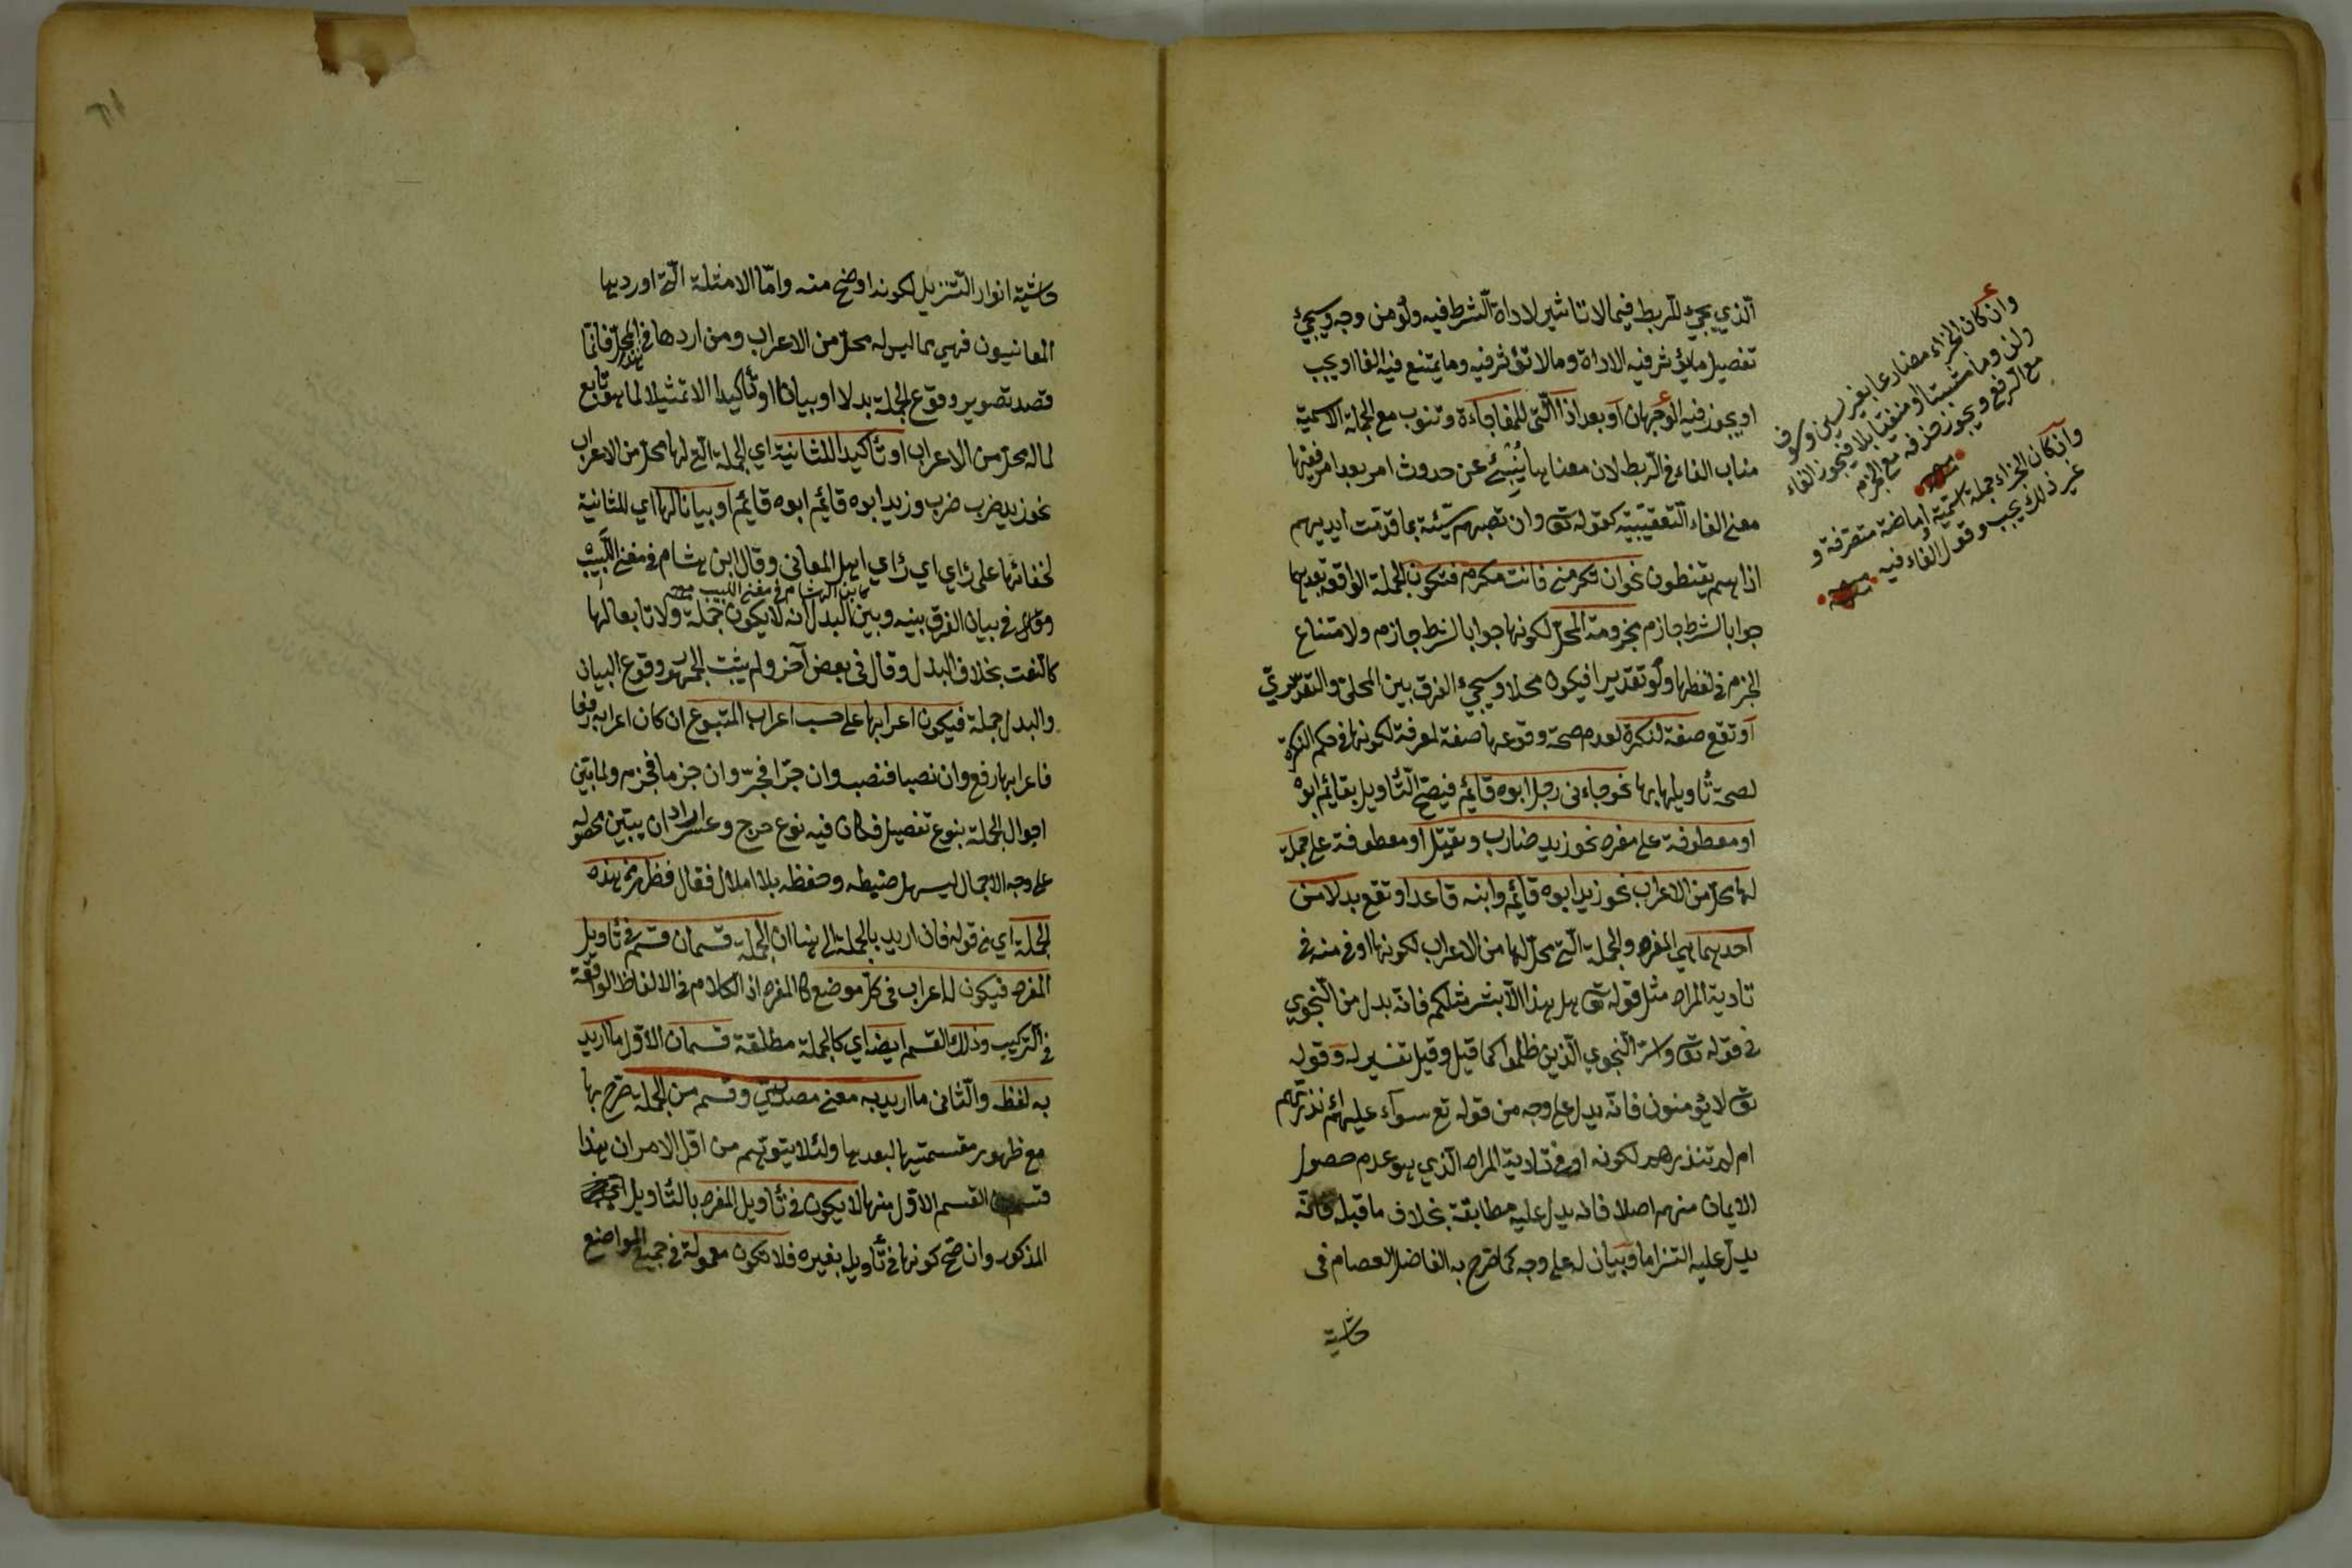 الذي يجيء للربط فيما لا تأثير لاداة الشرط فيه ولو من وجه وسيجيء
تفصيل ما يؤثر فيه الاداة وما لا تؤثر فيه وما يمتنع فيه الفا او يجب
او يجوز فيه الوجهان او بعد اذا التي للمفاجاءة وتنوب مع الجملة الاسمية
مناب الفاء في الربط لان معناها ينبئ عن حدوث امر بعد امر ففيها
معنى الفاء التعقيبية كقوله تع وان تصبهم سيئة بما قدمت ايديهم
اذا هم يقنطون نحو ان تكرمني فانت مكرم فتكون الجملة الواقعة بعدهما
جوابا لشرط جازم مجزومة المحل لكونها جوابا لشرط جازم ولامتناع
الجزم في لفظها ولو تقديرا فيكون محلا وسيجيء الفرق بين المحلي والتقديري
او تقع صفة لنكرة لعدم صحة وقوعها صفة لمعرفة لكونها في حكم النكرة
لصحة تأويلها بها نحو جاءني رجل ابوه قائم فيصح التأويل بقائم ابوه
او معطوفة على مفرد نحو زيد ضارب ويقتل او معطوفة على جملة
لها محل من الاعراب نحو زيد ابوه قائم وابنه قاعد او تقع بدلا من
احديهما هي المفرد والجملة التي محل لها من الاعراب لكونها اوفى منه في
تادية المراد مثل قوله تع هل هذا الا بشر مثلكم فانه بدل من النجوى
في قوله تع واسر النجوى الذين ظلموا كما قيل وقيل تفسير له وقوله
تع لا يؤمنون فانه بدل على وجه من قوله تع سواء عليهم ءانذرتهم
ام لم تنذرهم لكونه اوفى تادية المراد الذي هو عدم حصول
الايمان منهم اصلا فانه يدل عليه مطابقة بخلاف ما قبله فانه
يدل عليه التزاما وبيان له على وجه كما صرح به الفاضل العصام في
حاشية
وان كان الجزاء مضارعا بغير سين وسوف
ولن وما مثبتا او منفيا بلا فيجوز الفاء
مع الرفع ويجوز حذفه مع الجزم
منه
وان كان الجزاء جملة اسمية او ماضية متصرفة و
غير ذلك يجب وقوع الفاء فيه منه
حاشية انوار التنزيل لكونه اوضح منه واما الامثلة التي اوردها
المعانيون فهي مما ليس له محل من الاعراب ومن اردها في هذا المحل فانما
قصد تصوير وقوع الجملة بدلا او بيانا او تأكيدا لا تمثيلا لما هو تابع
لما له محل من الاعراب او تأكيدا للثانية اي الجملة التي لها محل من الاعراب
نحو زيد ضرب ضرب وزيد ابوه قائم ابوه قائم او بيانا لها اي للثانية
لخفائها على رأي اي رأي اهل المعاني وقال ابن هشام في مغني اللبيب
ابن الهشام في مغني اللبيب منه
وقال في بيان الفرق بينه وبين البدل انه لا يكون جملة ولا تابعا لها
كالنعت بخلاف البدل وقال في بعض آخر ولم يثبت الجمهور وقوع البيان
والبدل جملة فيكون اعرابها على حسب اعراب المتبوع ان كان اعرابه رفعا
فاعرابها رفع وان نصبا فنصب وان جرا فجر وان جزما فجزم ولما بين
احوال الجملة بنوع تفصيل فكان فيه نوع حرج وعسر اراد ان يبين محصوله
على وجه الاجمال ليسهل ضبطه وحفظه بلا املال فقال فظهر من هذه
الجملة اي من قوله فان اريد بالجملة الى هنا ان الجملة قسمان قسم في تأويل
المفرد فيكون له اعراب في كل موضع كالمفرد اذ الكلام في الالفاظ الواقعة
في التركيب وذلك القسم ايضا اي كالجملة مطلقة قسمان الاول ما اريد
به لفظه والثاني ما اريد به معنى مصدري وقسم من الجملة صرح بها
مع ظهور مقسمتيها لبعدها ولئلا يتوهم من اول الامر ان هذا
القسم الاول منها لا يكون في تأويل المفرد بالتأويل
المذكور وان صح كونها في تأويل بغيره فلا تكون معمولة في جميع المواضع